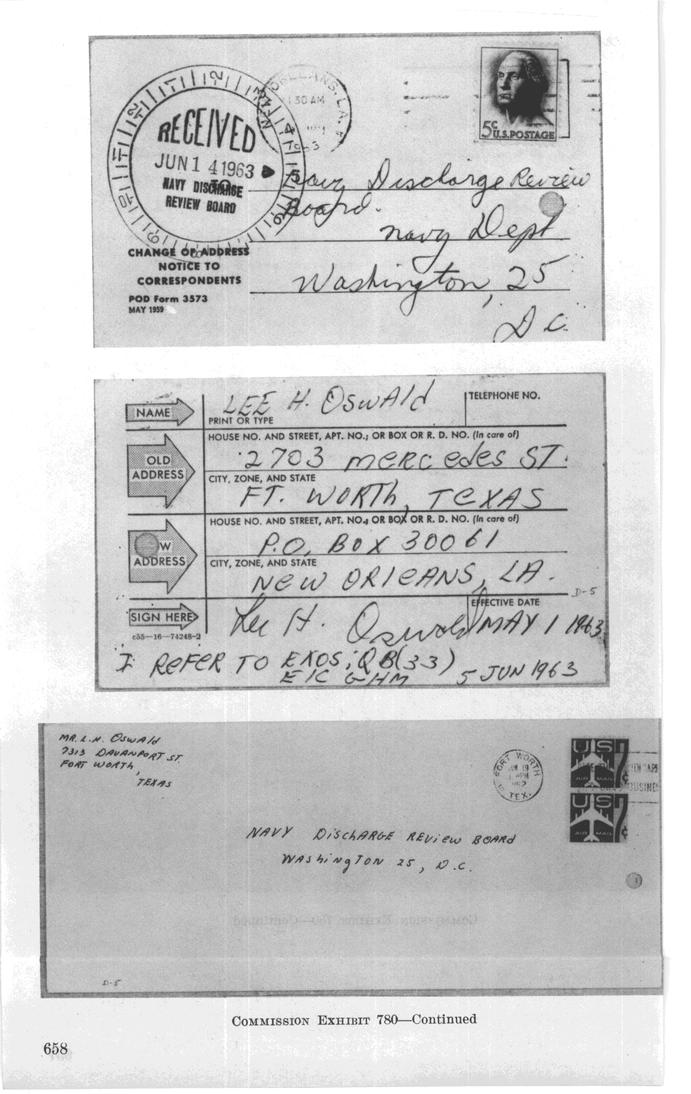 ORLEANS, LA.
30 AM
1963
RECEIVED
JUN 14 1963
NAVY DISCHARGE
REVIEW BOARD
5¢ U.S. POSTAGE
TO
Navy Discharge Review
Board.
Navy Dept
Washington, 25
D.C.
CHANGE OF ADDRESS
NOTICE TO
CORRESPONDENTS
POD Form 3573
MAY 1959
NAME
LEE H. OSWAld
PRINT OR TYPE
TELEPHONE NO.
HOUSE NO. AND STREET, APT. NO.; OR BOX OR R. D. NO. (In care of)
OLD
ADDRESS
2703 MERCEDES ST.
CITY, ZONE, AND STATE
FT. WORTH, TEXAS
HOUSE NO. AND STREET, APT. NO.; OR BOX OR R. D. NO. (In care of)
W
ADDRESS
P.O. BOX 30061
CITY, ZONE, AND STATE
NEW ORleANS, LA.
D-5
SIGN HERE
Lee H. Oswald
EFFECTIVE DATE
MAY 1 1963
c55—16—74248-2
I REFER TO EXOS:QB(33)
EIC GHM 5 JUN 1963
MR. L. H. OSWAld
7313 DAVANPORT ST.
FORT WORTH,
TEXAS
FORT WORTH
TEX.
US 7¢
AIR MAIL
US 7¢
AIR MAIL
NAVY DiSCHARGE REVIEW BOARD
WAShiNGTON 25, D.C.
D-5
COMMISSION EXHIBIT 780—Continued
658